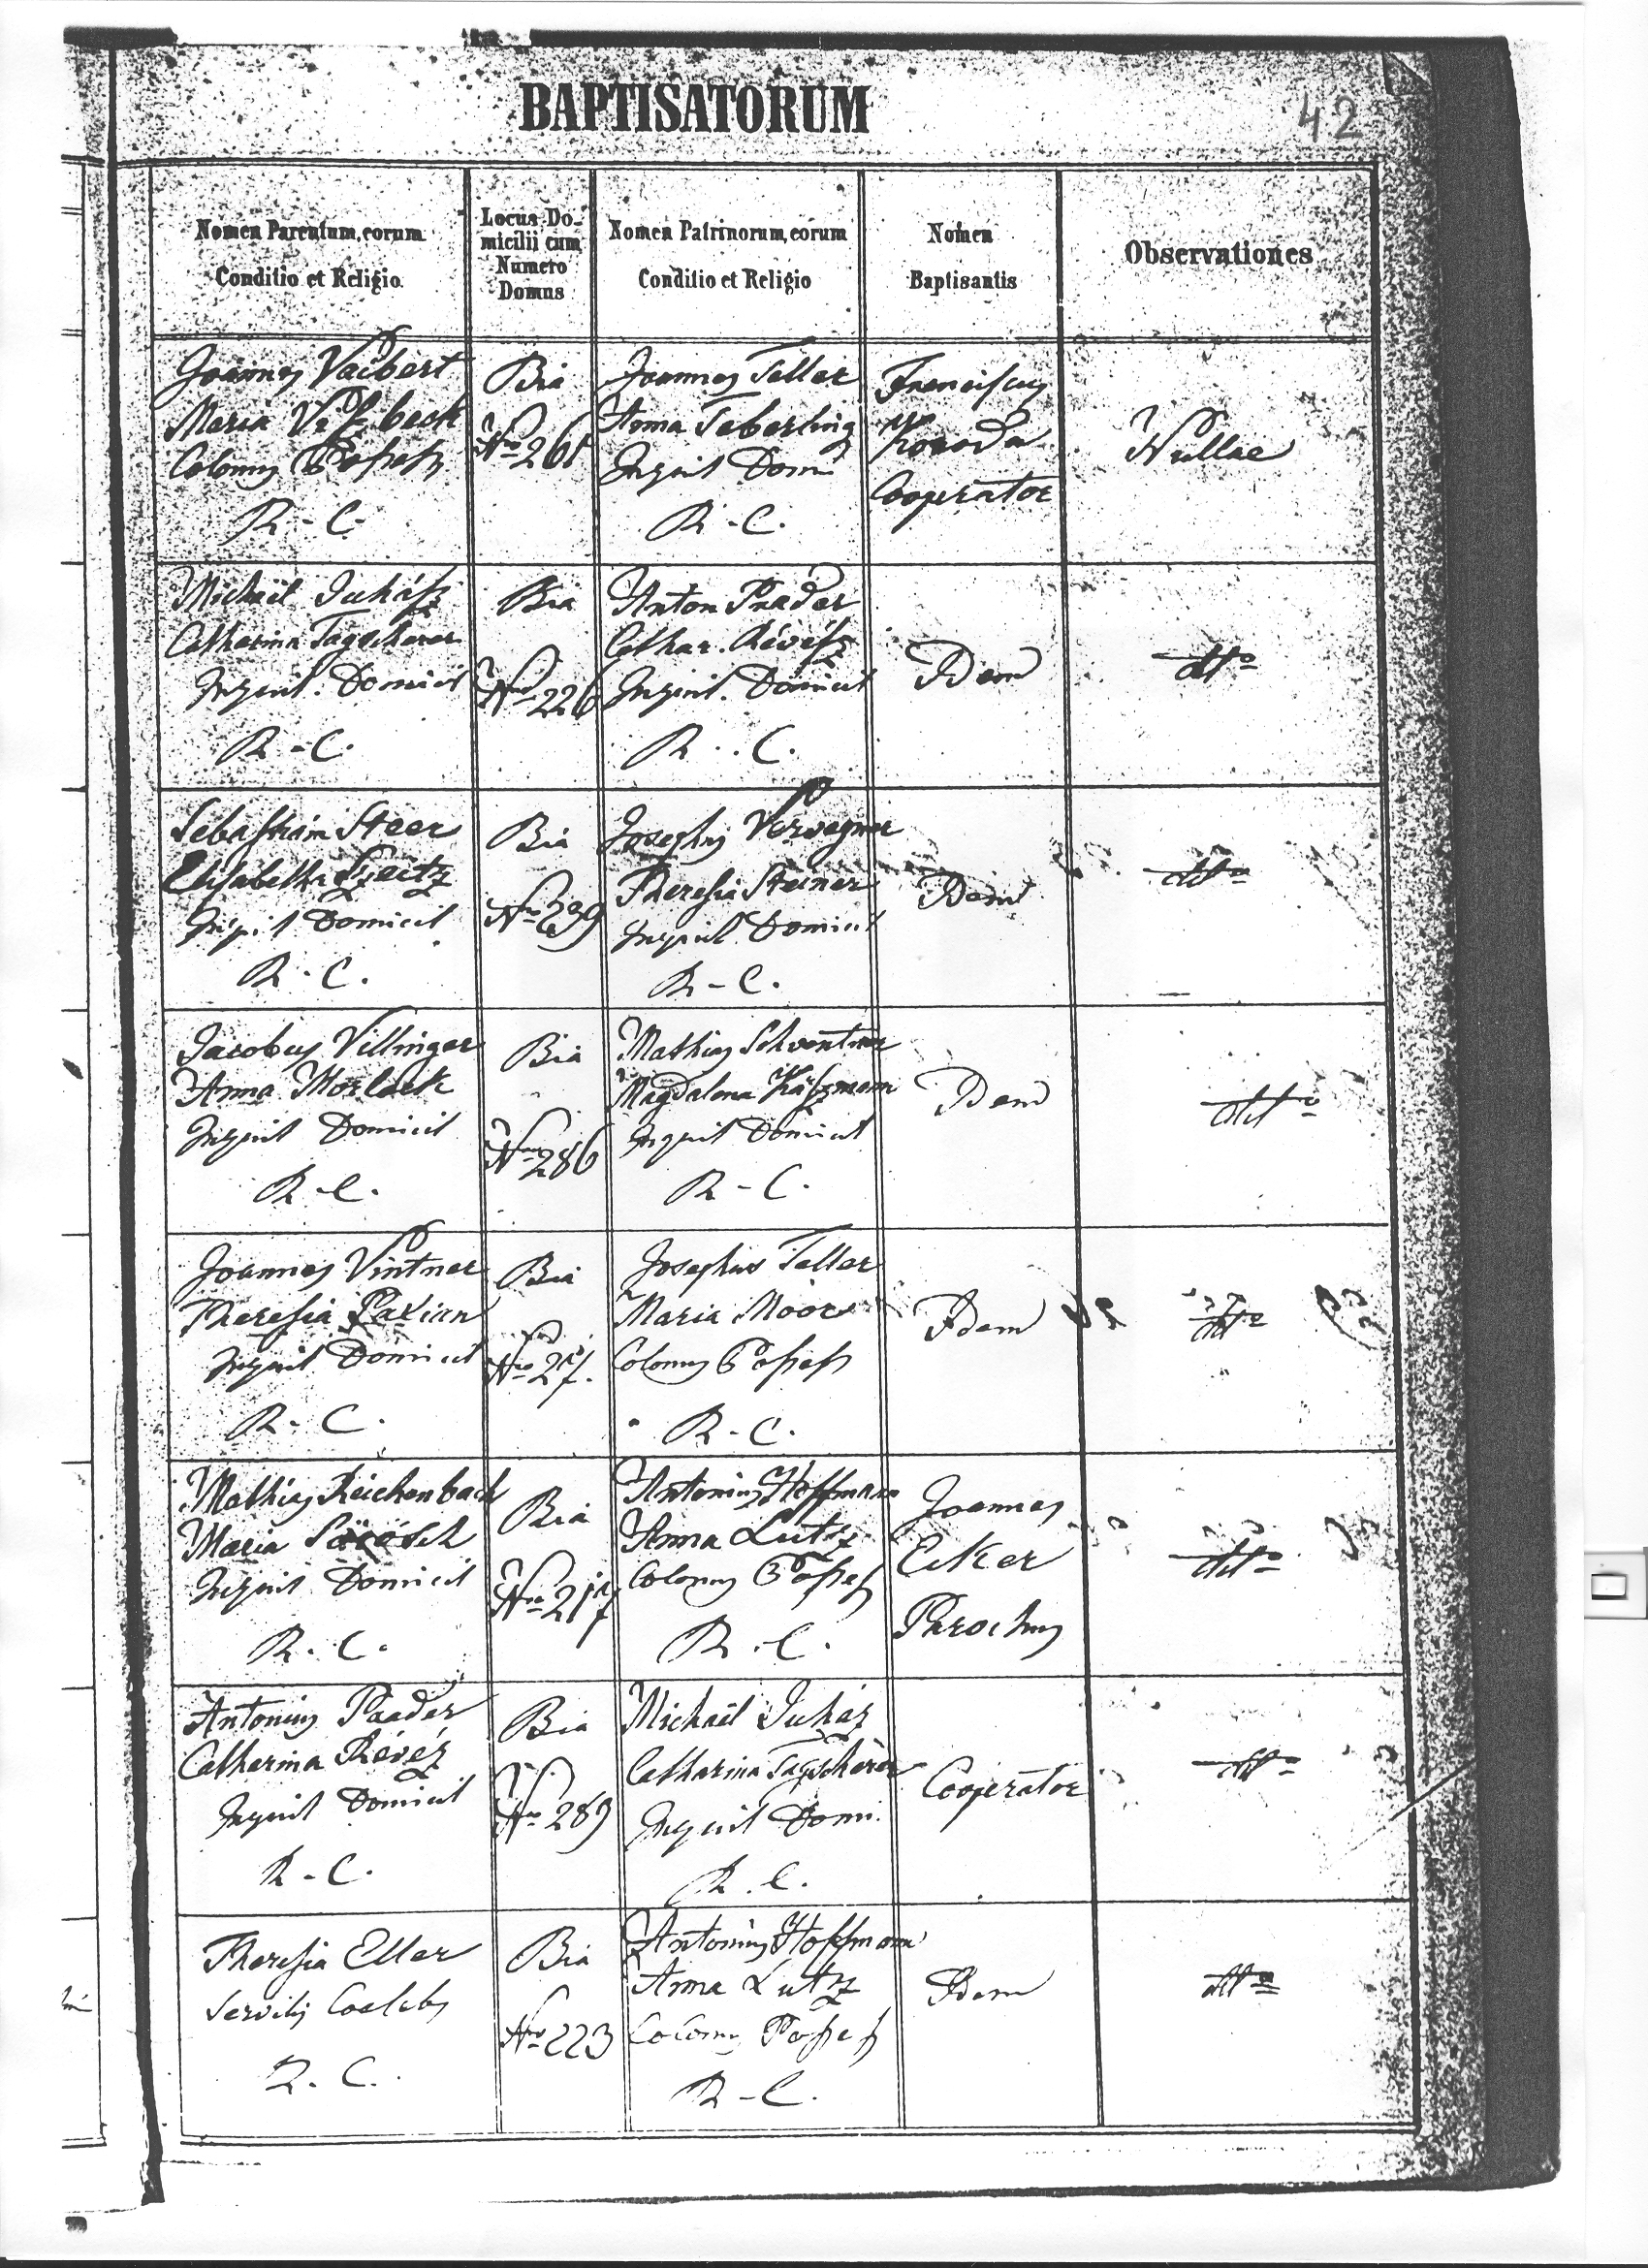 BAPTISATORUM
42
Nomen Parentum, eorum
Conditio et Religio
Locus Do-
micilii cum
Numero
Domus
Nomen Patrinorum, eorum
Conditio et Religio
Nomen
Baptisantis
Observationes
Joannes Vaibert
Maria
Colonus Possess
R-C-
Bia
Nro 261
Joannes Teller
Anna Teberling
Inquil Domi
R-C.
Franciscus
Cooperator
Nullae
Michaël Juhász
Catharina Tagscherer
Inquil. Domicil
R-C.
Bia
Nro 226
Anton Prader
Cathar. Révész
Inquil. Domicil
R. . C.
Idem
dtto
Sebastian Steer
Elisabetha
Inquil Domicil
R-C.
Bia
Nro 239
Josephus Verwagner
Theresia Steiner
Inquil Domicil
R-C.
Idem
dtto
Jacobus Villinger
Anna Morlock
Inquil Domicil
R-C.
Bia
Nro 286
Mathias Schventner
Magdalena Kászmann
Inquil Domicil
R-C.
Idem
dtto
Joannes Vintner
Theresia Paxian
Inquil Domicil
R-C.
Bia
Nro 27.
Josephus Teller
Maria Moor
Colonus Possess
R-C.
Idem
dtto
Mathias Reichenbach
Maria
Inquil Domicil
R.C.
Bia
Nro 217
Antonius Hoffmann
Anna Lutz
Colonus Posess
R.C.
Joannes
Eiker
Parochus
dtto
Antonius Prader
Catharina Révéz
Inquil Domicil
R-C.
Bia
Nro 289
Michaël Juház
Catharina Tagscherer
Inquil Domi.
R.C.
Cooperator
dtto
Theresia Eller
Servilis Coelebs
R.C.
Bia
Nro 223
Antonius Hoffmann
Anna Lutz
Colonus Posess
R-C.
Idem
dtto